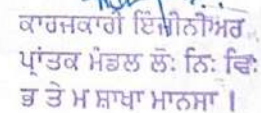 ਕਾਰਜਕਾਰੀ ਇੰਜੀਨੀਅਰ
ਪ੍ਰਾਂਤਕ ਮੰਡਲ ਲੋ: ਨਿ: ਵਿ:
ਭ ਤੇ ਮ ਸ਼ਾਖਾ ਮਾਨਸਾ ।